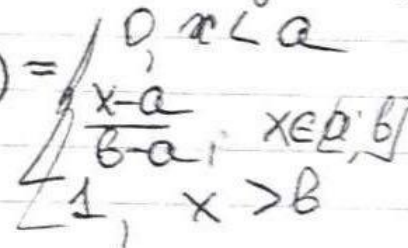 0, x < a
) = { (x-a)/(b-a), x∈[a;b]
1, x > b